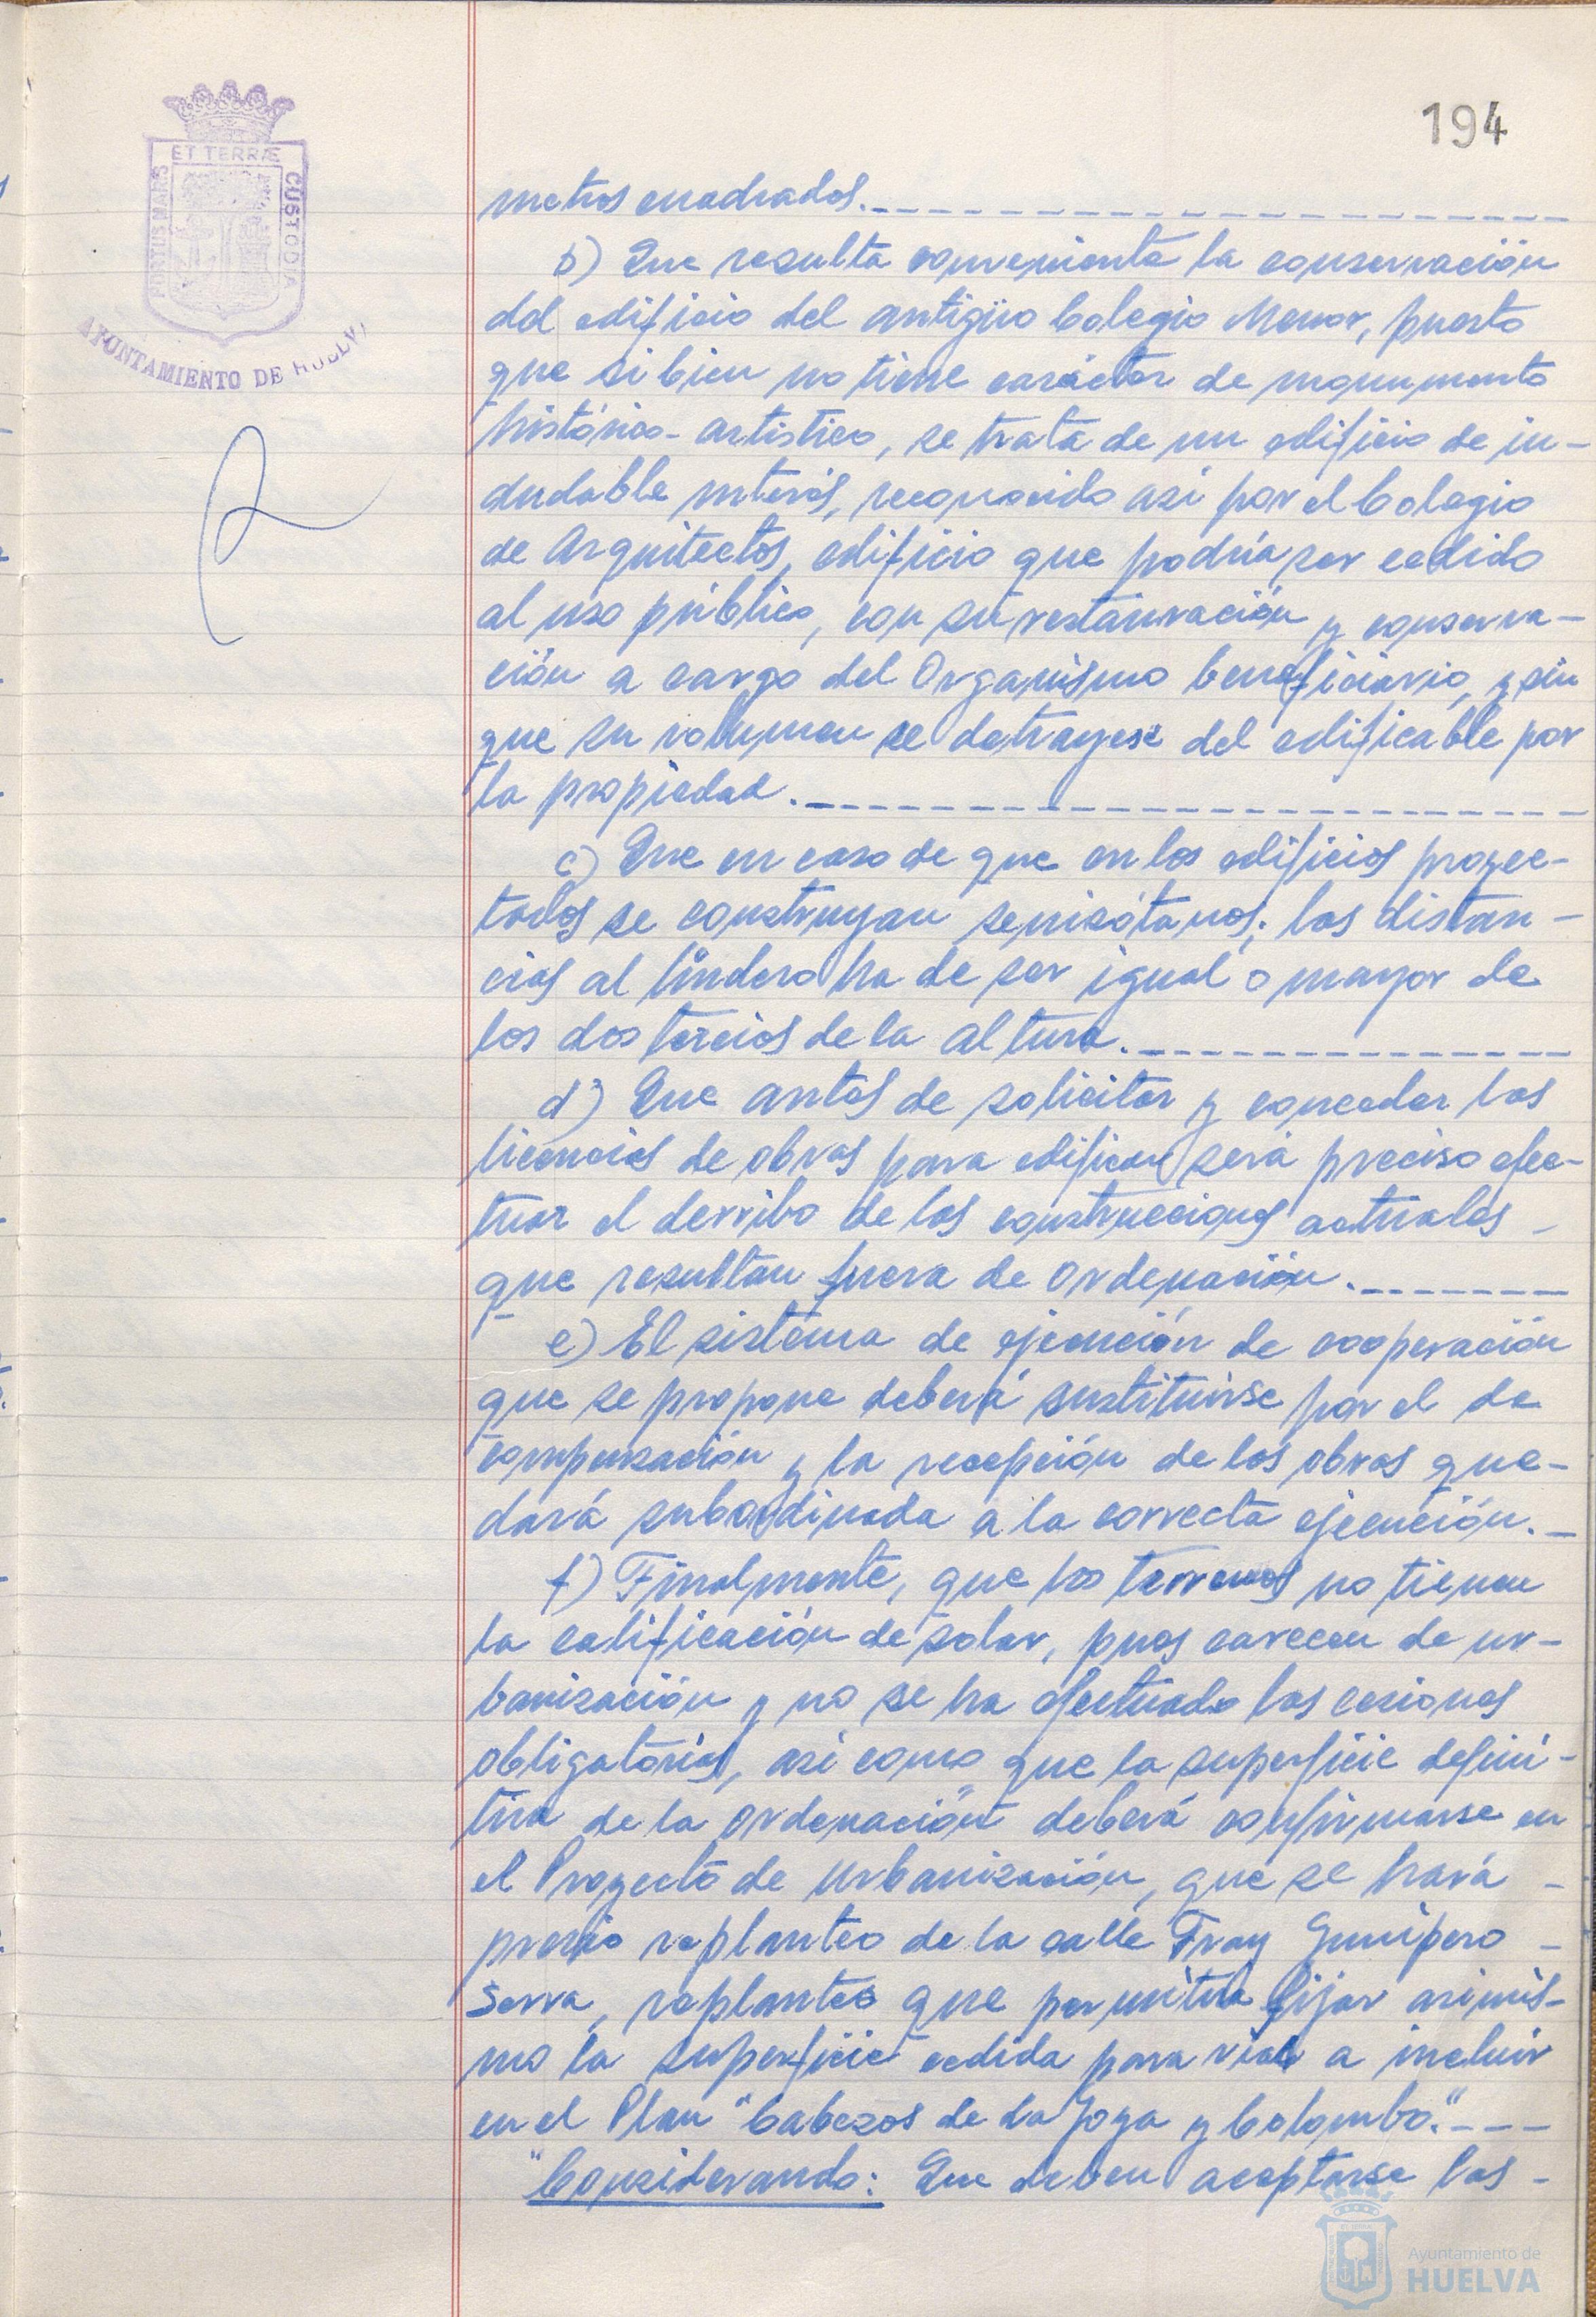 194
ET TERRÆ
PORTUS MARIS
CUSTODIA
AYUNTAMIENTO DE HUELVA
metros cuadrados.
b) Que resulta conveniente la conservación
del edificio del antiguo Colegio Menor, puesto
que si bien no tiene carácter de monumento
histórico-artístico, se trata de un edificio de in-
dudable interés, reconocido así por el Colegio
de Arquitectos, edificio que podría ser cedido
al uso público, con su restauración y conserva-
ción a cargo del Organismo beneficiario, y sin
que su volumen se detrayese del edificable por
la propiedad.
c) Que en caso de que en los edificios proyec-
tados se construyan semisótanos, las distan-
cias al lindero ha de ser igual o mayor de
los dos tercios de la altura.
d) Que antes de solicitar y conceder las
licencias de obras para edificar será preciso efec-
tuar el derribo de las construcciones actuales
que resultan fuera de ordenación.
e) El sistema de ejecución de cooperación
que se propone deberá sustituirse por el de
compensación y la recepción de las obras que-
dará subordinada a la correcta ejecución.
f) Finalmente, que los terrenos no tienen
la calificación de solar, pues carecen de ur-
banización y no se ha efectuado las cesiones
obligatorias, así como que la superficie defini-
tiva de la ordenación deberá confirmarse en
el Proyecto de Urbanización, que se hará
previo replanteo de la calle Fray Junípero
Serra, replanteo que permitirá fijar asimis-
mo la superficie cedida para vial a incluir
en el Plan "Cabezos de La Joya y Colombo".
"Considerando: Que deben aceptarse las
Ayuntamiento de
HUELVA